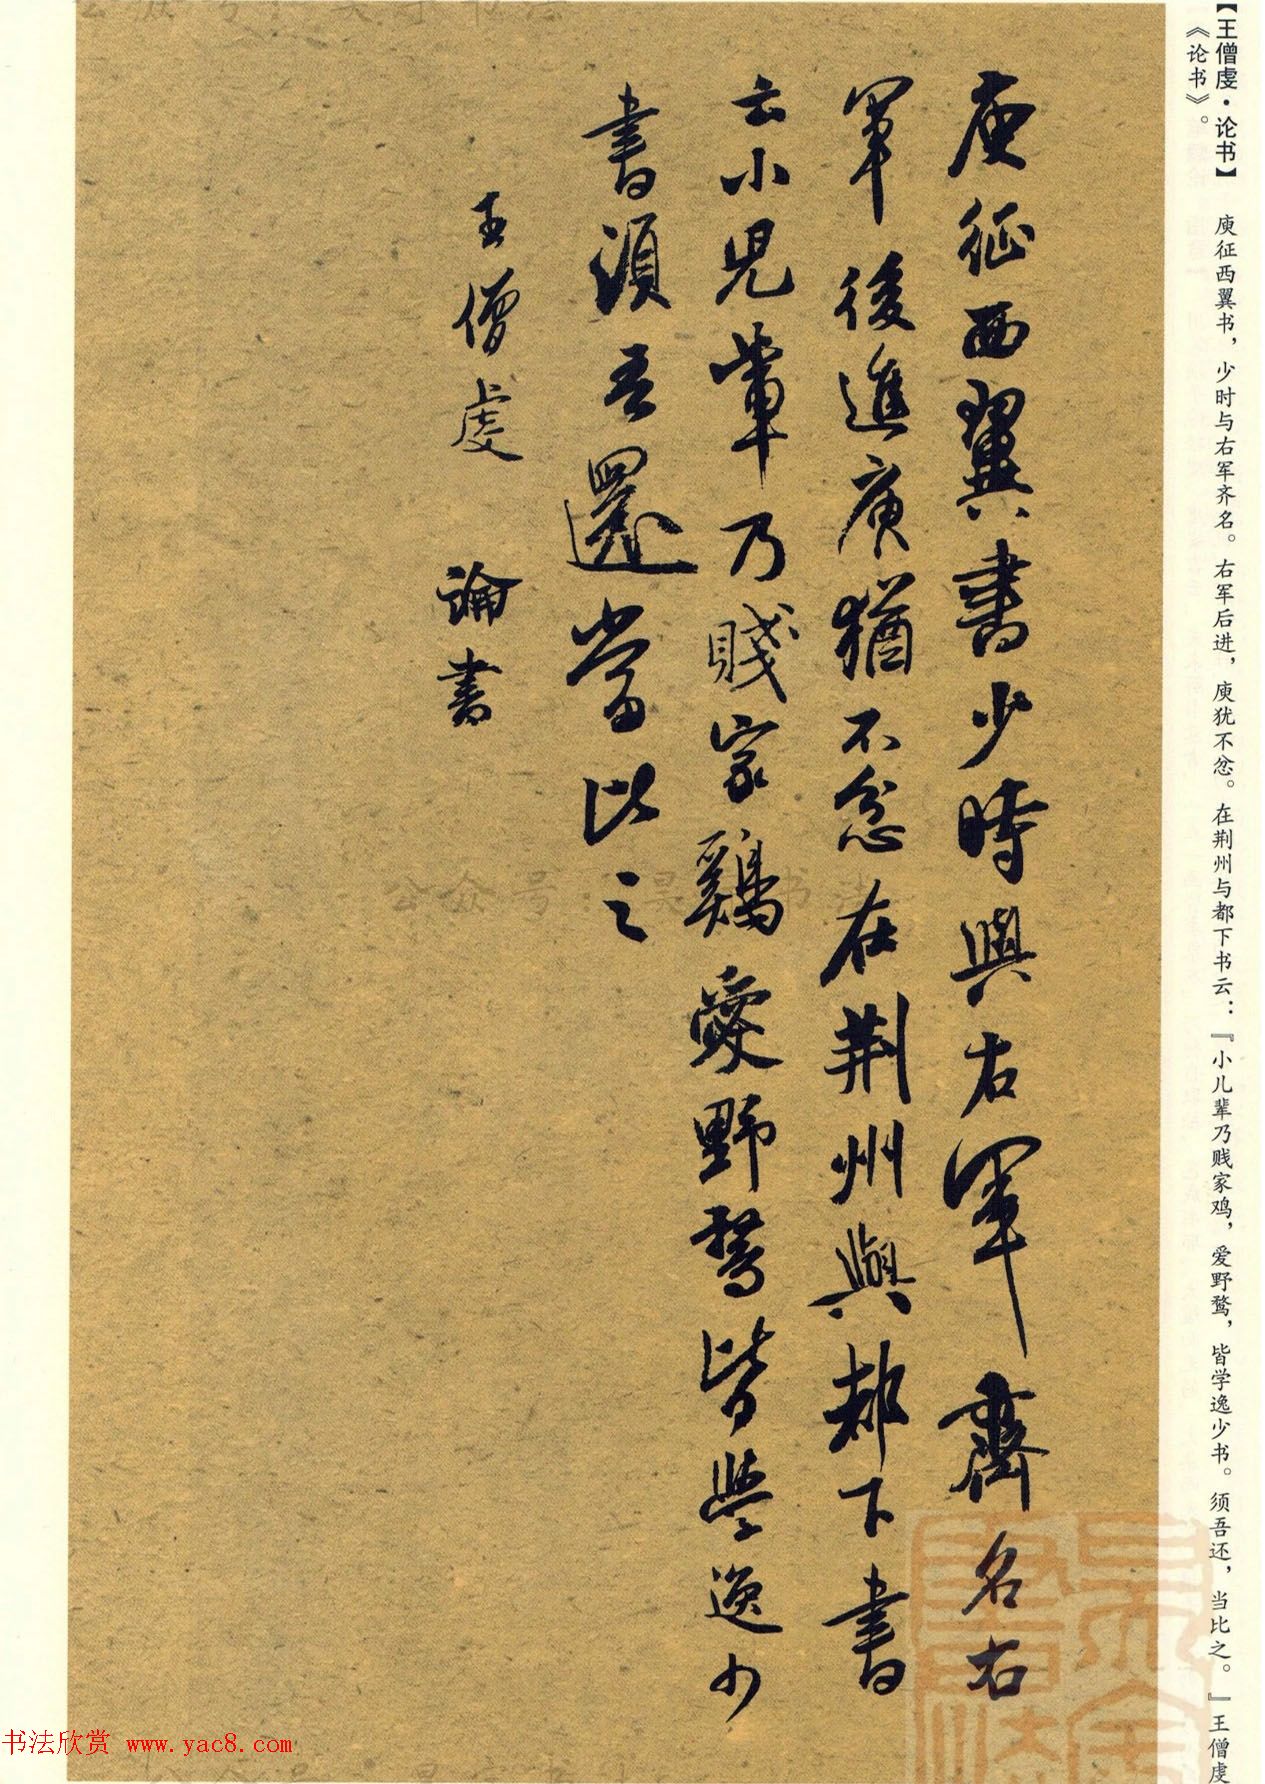 【王僧虔·论书】　庾征西翼书，少时与右军齐名。右军后进，庾犹不忿。在荆州与都下书云：『小儿辈乃贱家鸡，爱野鹜，皆学逸少书。须吾还，当比之。』王僧虔
《论书》。
庾征西翼書少時與右軍齊名右
軍後進庾猶不忿在荆州與都下書
云小兒輩乃賤家鷄愛野鶩皆學逸少
書須吾還當比之
王僧虔　論書
公众号:昊 书法
书法欣赏 www.yac8.com